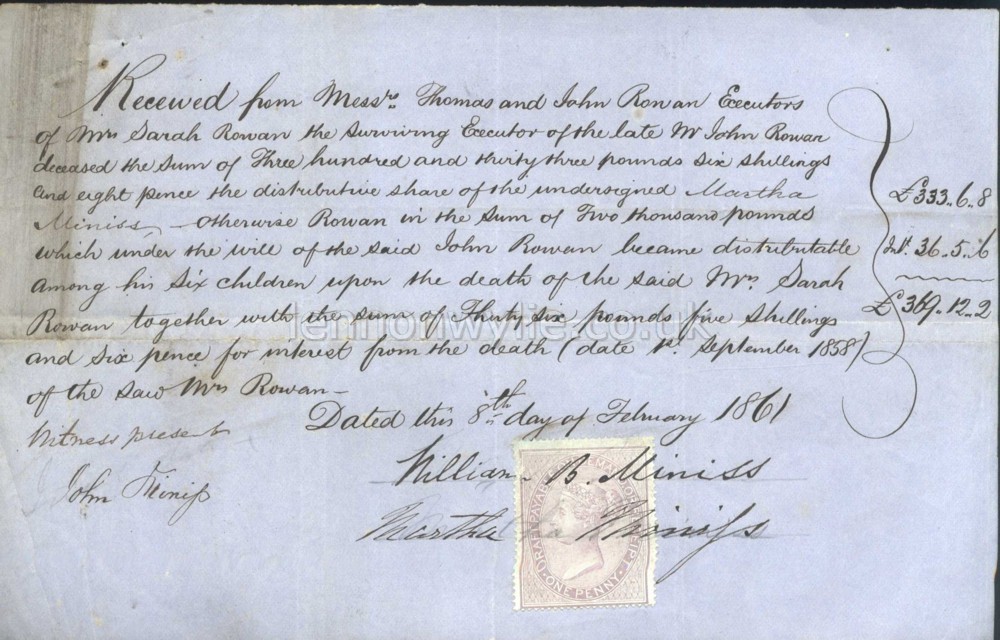 Received from Messrs. Thomas and John Rowan Executors
of Mrs Sarah Rowan the surviving Executor of the late Mr John Rowan
deceased the sum of Three hundred and thirty three pounds six shillings
and eight pence the distributive share of the undersigned Martha
Miniss, otherwise Rowan in the sum of Two thousand pounds
which under the will of the said John Rowan became distributable
among his six children upon the death of the said Mrs Sarah
Rowan together with the sum of Thirty six pounds five shillings
and six pence for interest from the death (date 1st. September 1858)
of the said Mrs Rowan—
£333..6..8
Int. 36..5..6
£369.12..2
Dated this 8th day of February 1861
Witness present
William B. Miniss
John Miniss
Martha Miniss
DRAFT PAYABLE RECEIPT
ONE PENNY
lennonwylie.co.uk